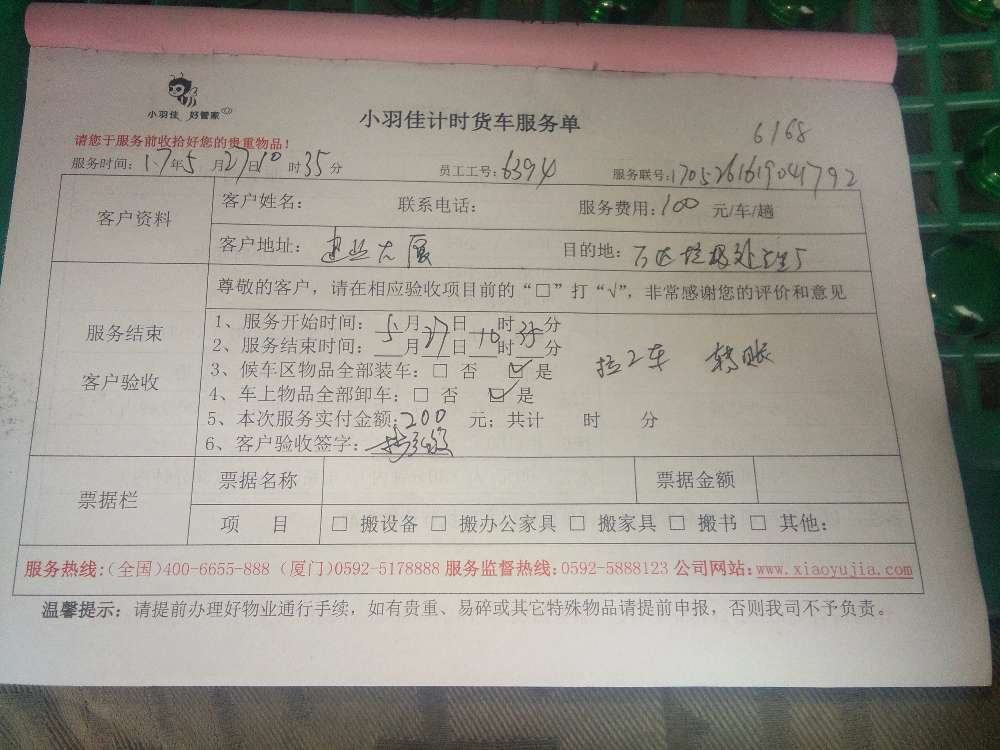 小羽佳 好管家
小羽佳计时货车服务单
6168
请您于服务前收拾好您的贵重物品！
服务时间：17年5月27日10时35分 员工工号：6394 服务联号：17052616190417 92
客户资料 客户姓名： 联系电话： 服务费用：100 元/车/趟
客户地址：建业大厦 目的地：
尊敬的客户，请在相应验收项目前的“□”打“√”，非常感谢您的评价和意见
服务结束
客户验收
1、服务开始时间：5月27日10时35分
2、服务结束时间：___月___日___时___分
3、候车区物品全部装车：□ 否 ☑ 是 拉2车 转账
4、车上物品全部卸车：□ 否 ☑ 是
5、本次服务实付金额：200 元；共计 时 分
6、客户验收签字：
票据栏 票据名称 票据金额
项 目 □ 搬设备 □ 搬办公家具 □ 搬家具 □ 搬书 □ 其他：
服务热线：（全国）400-6655-888（厦门）0592-5178888 服务监督热线：0592-5888123 公司网站：www.xiaoyujia.com
温馨提示：请提前办理好物业通行手续，如有贵重、易碎或其它特殊物品请提前申报，否则我司不予负责。